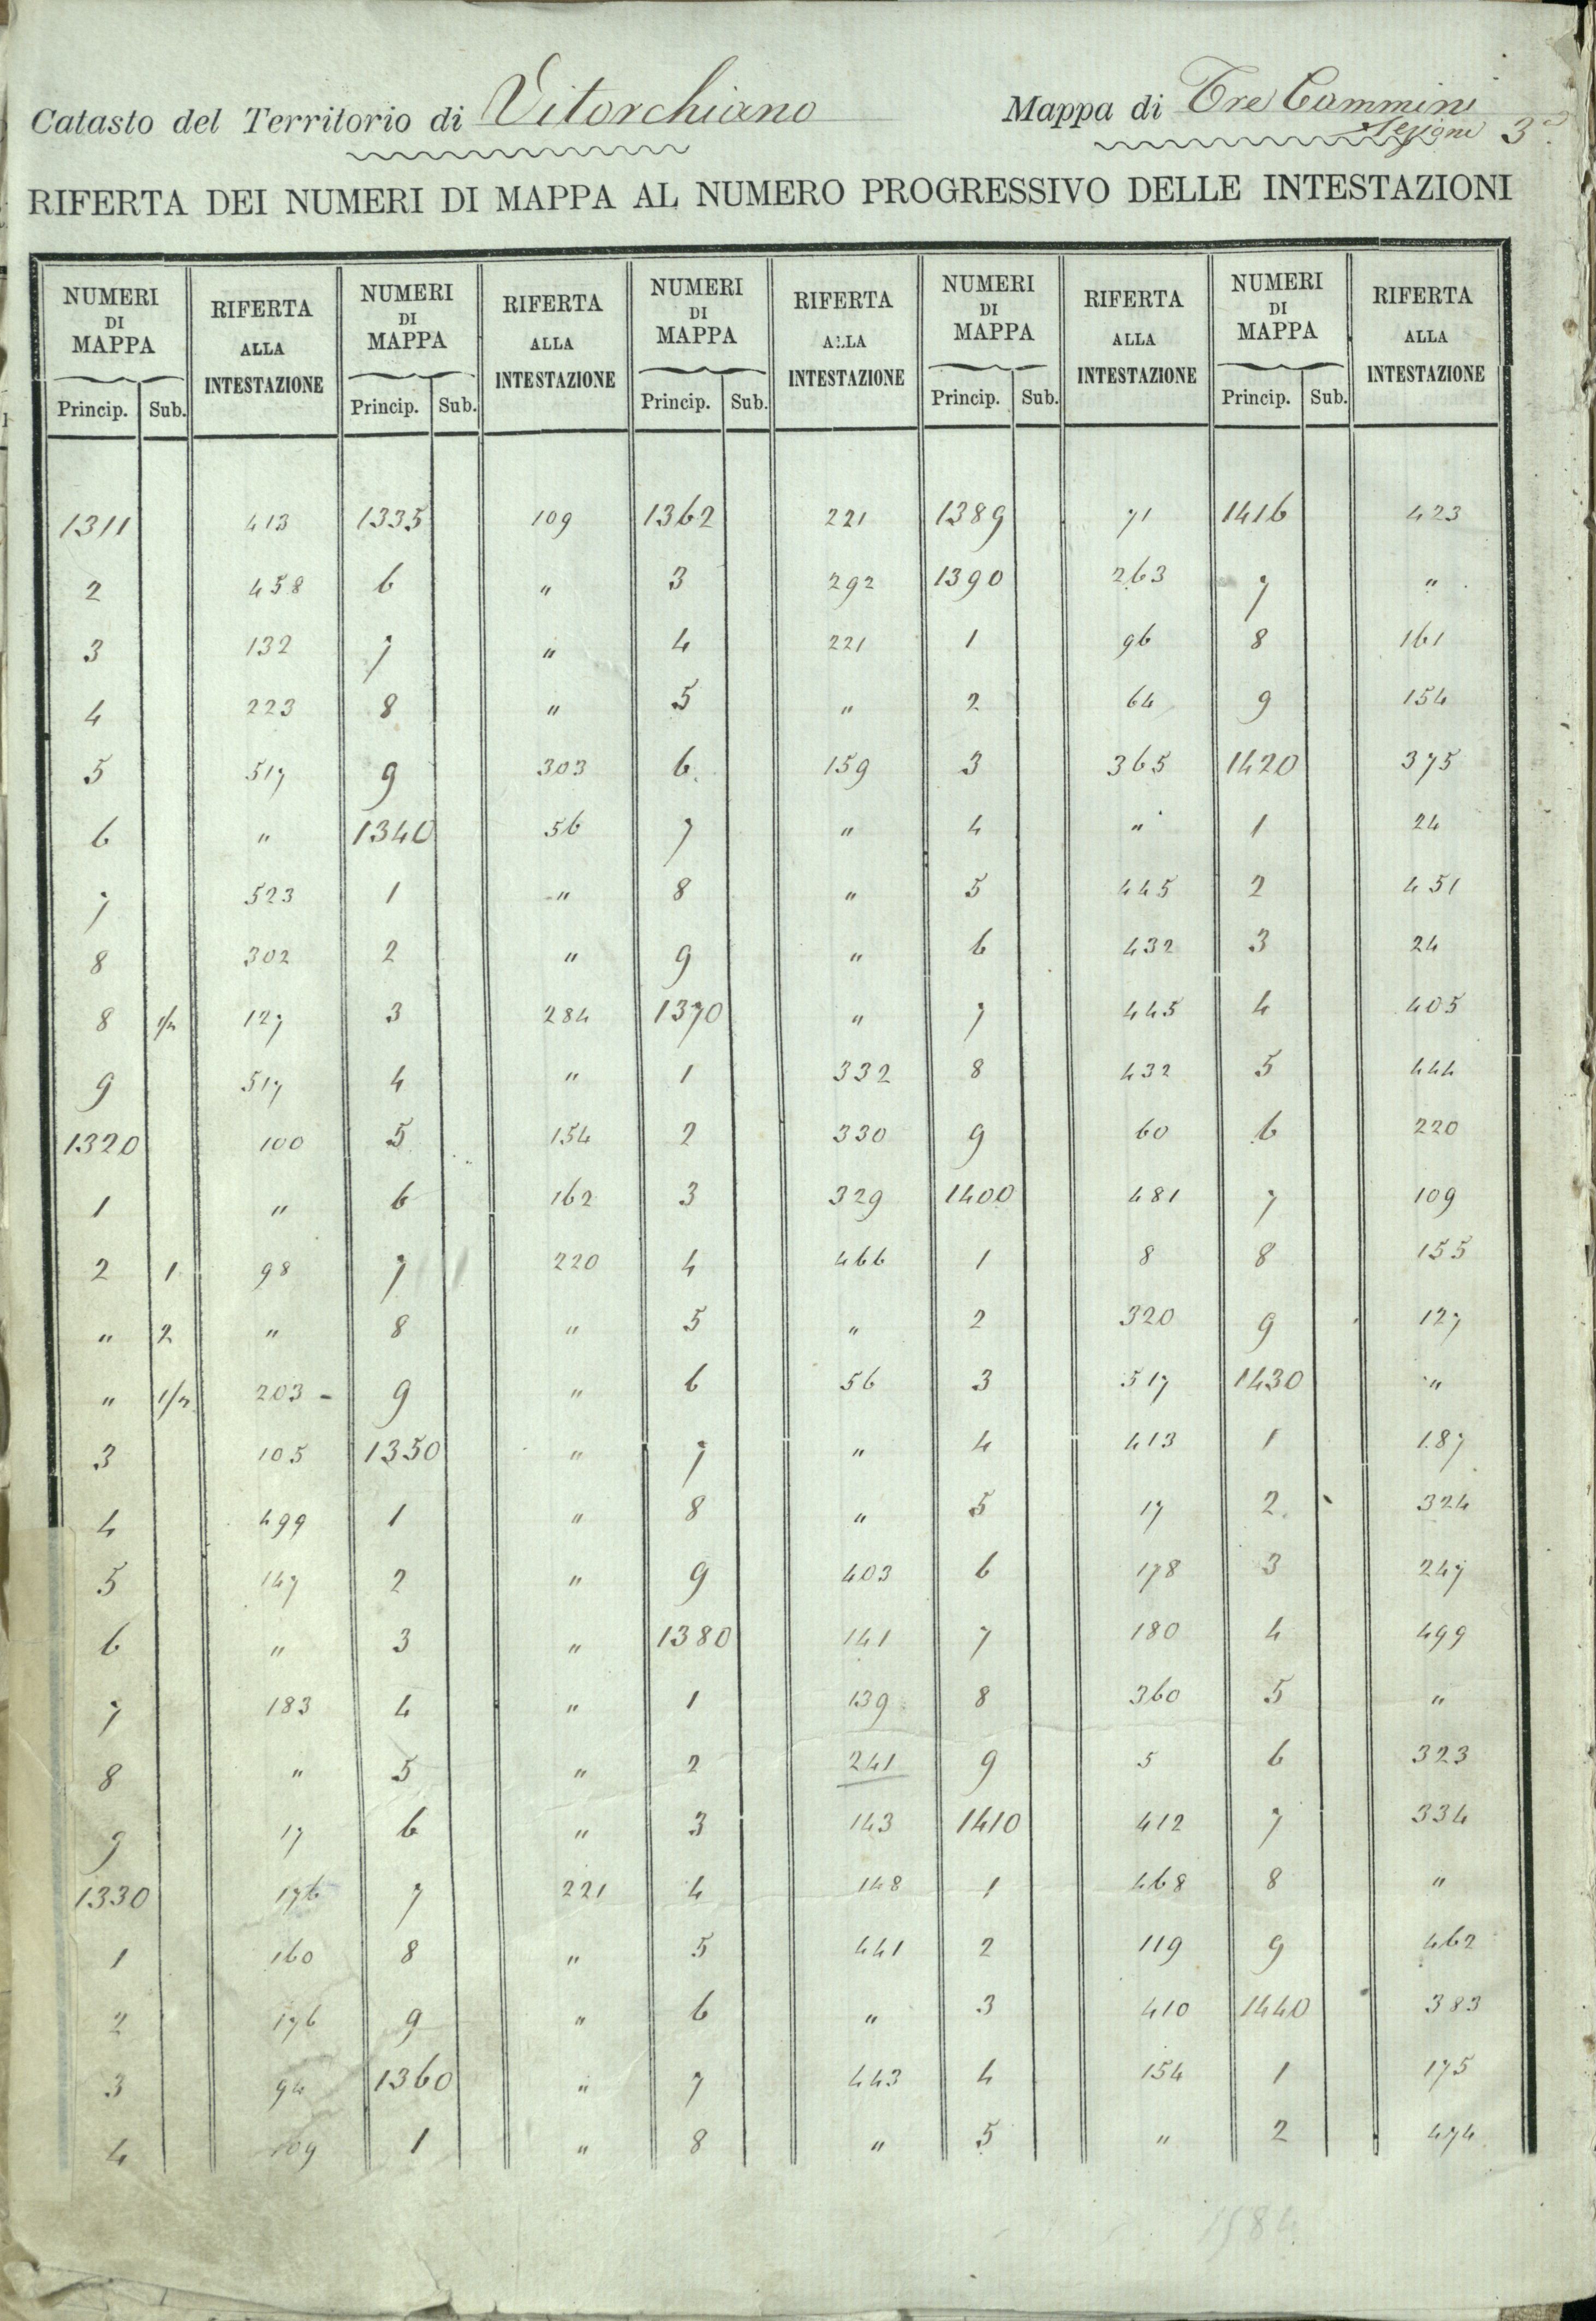 Catasto del Territorio di Vitorchiano Mappa di Tre Cammini
Sezione 3ª
RIFERTA DEI NUMERI DI MAPPA AL NUMERO PROGRESSIVO DELLE INTESTAZIONI
NUMERI DI MAPPA RIFERTA ALLA INTESTAZIONE NUMERI DI MAPPA RIFERTA ALLA INTESTAZIONE NUMERI DI MAPPA RIFERTA ALLA INTESTAZIONE NUMERI DI MAPPA RIFERTA ALLA INTESTAZIONE NUMERI DI MAPPA RIFERTA ALLA INTESTAZIONE
Princip. Sub. Princip. Sub. Princip. Sub. Princip. Sub. Princip. Sub.
1311 413 1335 109 1362 221 1389 71 1416 423
2 458 6 " 3 292 1390 263 7 "
3 132 7 " 4 221 1 96 8 161
4 223 8 " 5 " 2 64 9 154
5 517 9 303 6 159 3 365 1420 375
6 " 1340 56 7 " 4 " 1 24
7 523 1 " 8 " 5 445 2 451
8 302 2 " 9 " 6 432 3 24
8 1/2 127 3 284 1370 " 7 445 4 405
9 517 4 " 1 332 8 432 5 444
1320 100 5 154 2 330 9 60 6 220
1 " 6 162 3 329 1400 481 7 109
2 1 98 7 220 4 466 1 8 8 155
" 2 " 8 " 5 " 2 320 9 127
" 1/2 203 - 9 " 6 56 3 517 1430 "
3 105 1350 " 7 " 4 413 1 187
4 499 1 " 8 " 5 17 2 324
5 147 2 " 9 403 6 178 3 247
6 " 3 " 1380 141 7 180 4 499
7 183 4 " 1 139 8 360 5 "
8 " 5 " 2 241 9 5 6 323
9 17 6 " 3 143 1410 412 7 334
1330 176 7 221 4 148 1 468 8 "
1 160 8 " 5 441 2 119 9 462
2 176 9 " 6 " 3 410 1440 383
3 94 1360 " 7 443 4 154 1 175
4 109 1 " 8 " 5 " 2 474
1584